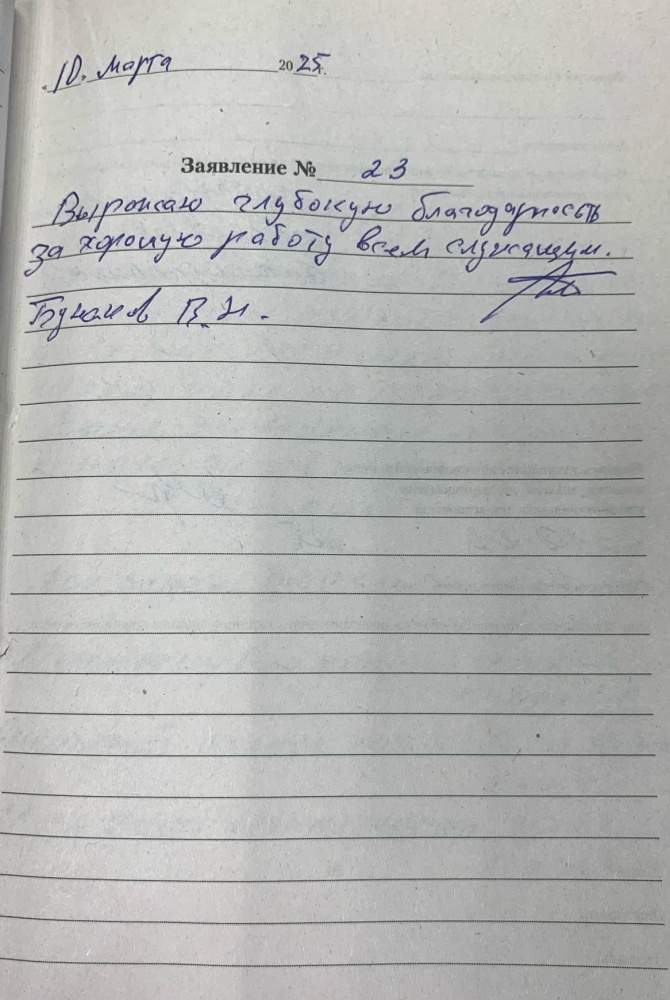 10. Марта 2025г.
Заявление № 23
Выражаю глубокую благодарность
за хорошую работу всем служащим.
В.Н.